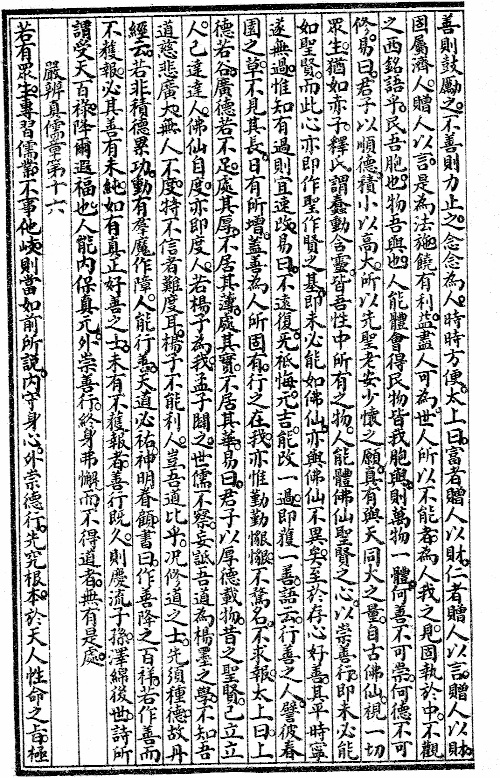 善則鼓勵之。不善則力止之。念念為人。時時方便。太上曰。富者贈人以財。仁者贈人以言。贈人以財
固屬濟人。贈人以言。是為法施。饒有利益。盡人可為。世人所以不能者。為人我之見。固執於中。不觀
之西銘語乎。民吾胞也。物吾與也。人能體會得民物皆我胞與。則萬物一體。何善不可崇。何德不可
修。易曰。君子以順德。積小以高大。所以先聖老安少懷之願。真有與天同大之量。自古佛仙。視一切
眾生。猶如赤子。釋氏謂蠢動含靈。皆吾性中所有之物。人能體佛仙聖賢之心。以崇善行。即未必能
如聖賢。而此心亦即作聖作賢之基。即未必能如佛仙。亦與佛仙不異矣。至於存心好善。其平時寧
遂無過。惟知有過則宜速改。易曰。不遠復。无祇悔。元吉。能改一過。即復一善。語云。行善之人。譬彼春
園之草。不見其長。日有所增。蓋善為人所固有。行之在我。亦惟勤勤懇懇。不驁名。不求報。太上曰。上
德若谷。廣德若不足。處其厚。不居其薄。處其實。不居其華。易曰。君子以厚德載物。昔之聖賢。己立立
人。己達達人。佛仙自度。亦即度人。若楊子為我。孟子闢之。世儒不察。妄詆吾道為楊墨之學。不知吾
道慈悲廣大。無人不度。特不信者難度耳。楊子不能利人。豈吾道比乎。况修道之士。先須種德。故丹
經云。若非積德累功。動有羣魔作障。人能行善。天道必祐。神明眷顧。書曰。作善降之百祥。若作善而
不獲報。必其善有未純。如有真正好善之士。未有不獲報者。善行既久。則慶流子孫。澤綿後世。詩所
謂受天百祿。降爾遐福也。人能內保真元。外崇善行。終身弗懈。而不得道者。無有是處。
嚴辨真儒章第十六
若有眾生。專習儒業。不事他岐。則當如前所說。內守身心。外崇德行。先究根本。於天人性命之旨。極